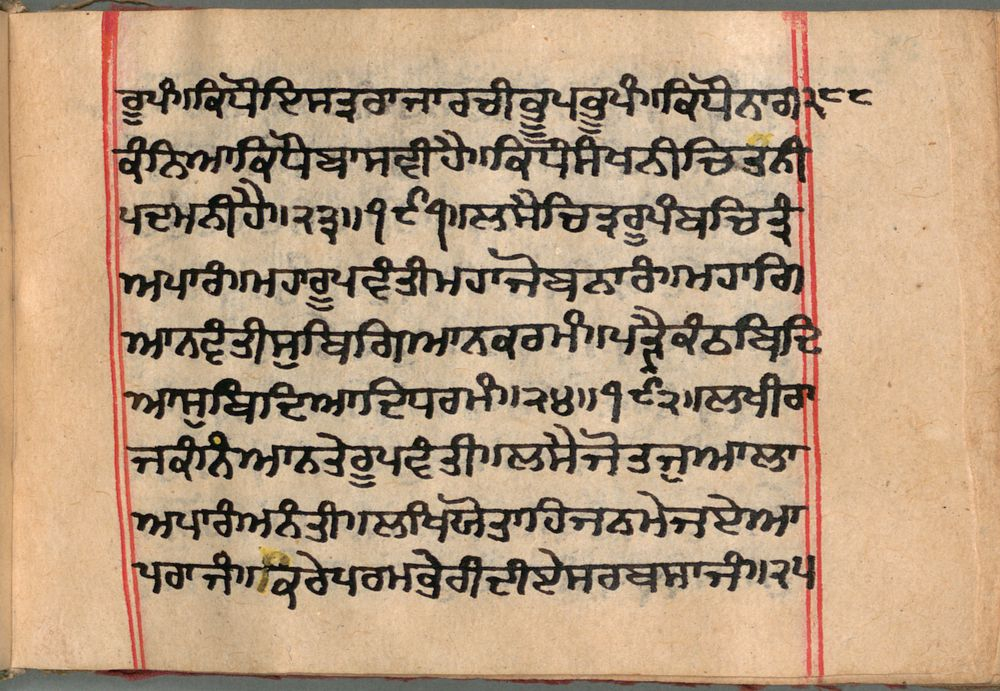 ਰੂਪੰ॥ਕਿਧੌਇਸਤ੍ਰਰਾਜਾਰਚੀਭੂਪਭੂਪੰ॥ਕਿਧੌਨਾਗ੨੮੮
ਕੰਨਿਆਕਿਧੌਬਾਸਵੀਹੈ॥ਕਿਧੌਸੰਖਨੀਚਿਤ੍ਰਨੀ
ਪਦਮਨੀਹੈ॥੨੩॥੧੯੧॥ਲਸੈਚਿਤ੍ਰਰੂਪੰਬਚਿਤ੍ਰੰ
ਅਪਾਰੰ॥ਮਹਾਰੂਪਵੰਤੀਮਹਾਜੋਬਨਾਰੰ॥ਮਹਾਗਿ
ਆਨਵੰਤੀਸੁਬਿਗਿਆਨਕਰਮੰ॥ਪੜੈਕੰਠਬਿਦਿ
ਆਸੁਬਿਦਿਆਦਿਧਰਮੰ॥੨੪॥੧੯੨॥ਲਖੀਰਾ
ਜਕੰਨਿਆਨਤੇਰੂਪਵੰਤੀ॥ਲਸੈਜੋਤਜੁਆਲਾ
ਅਪਾਰੰਅਨੰਤੀ॥ਲਖਿਯੋਤਾਹਿਜਨਮੇਜਏਆ
ਪਰਾਜੰ॥ਕਰੇਪਰਮਭੋਗੰਦੀਏਸਰਬਸਾਜੰ॥੨੫